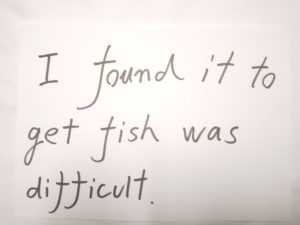 I found it to
get fish was
difficult.